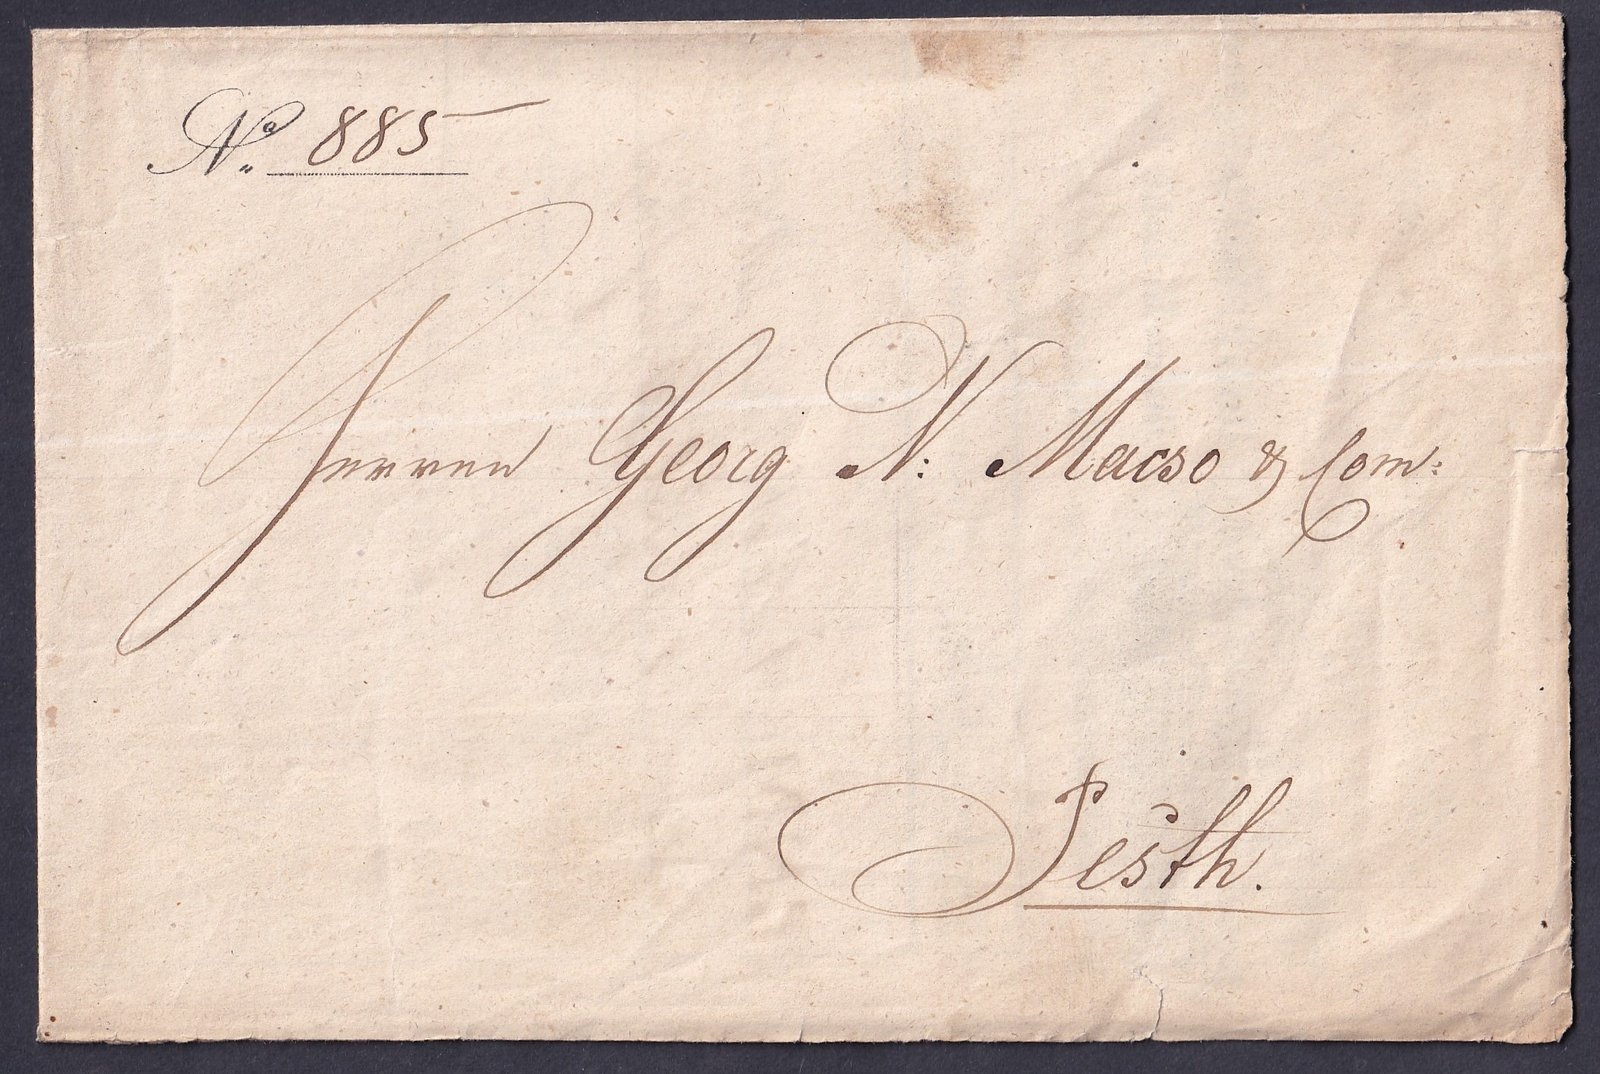 No. 885
Herren Georg N: Macso & Com:
Pesth.